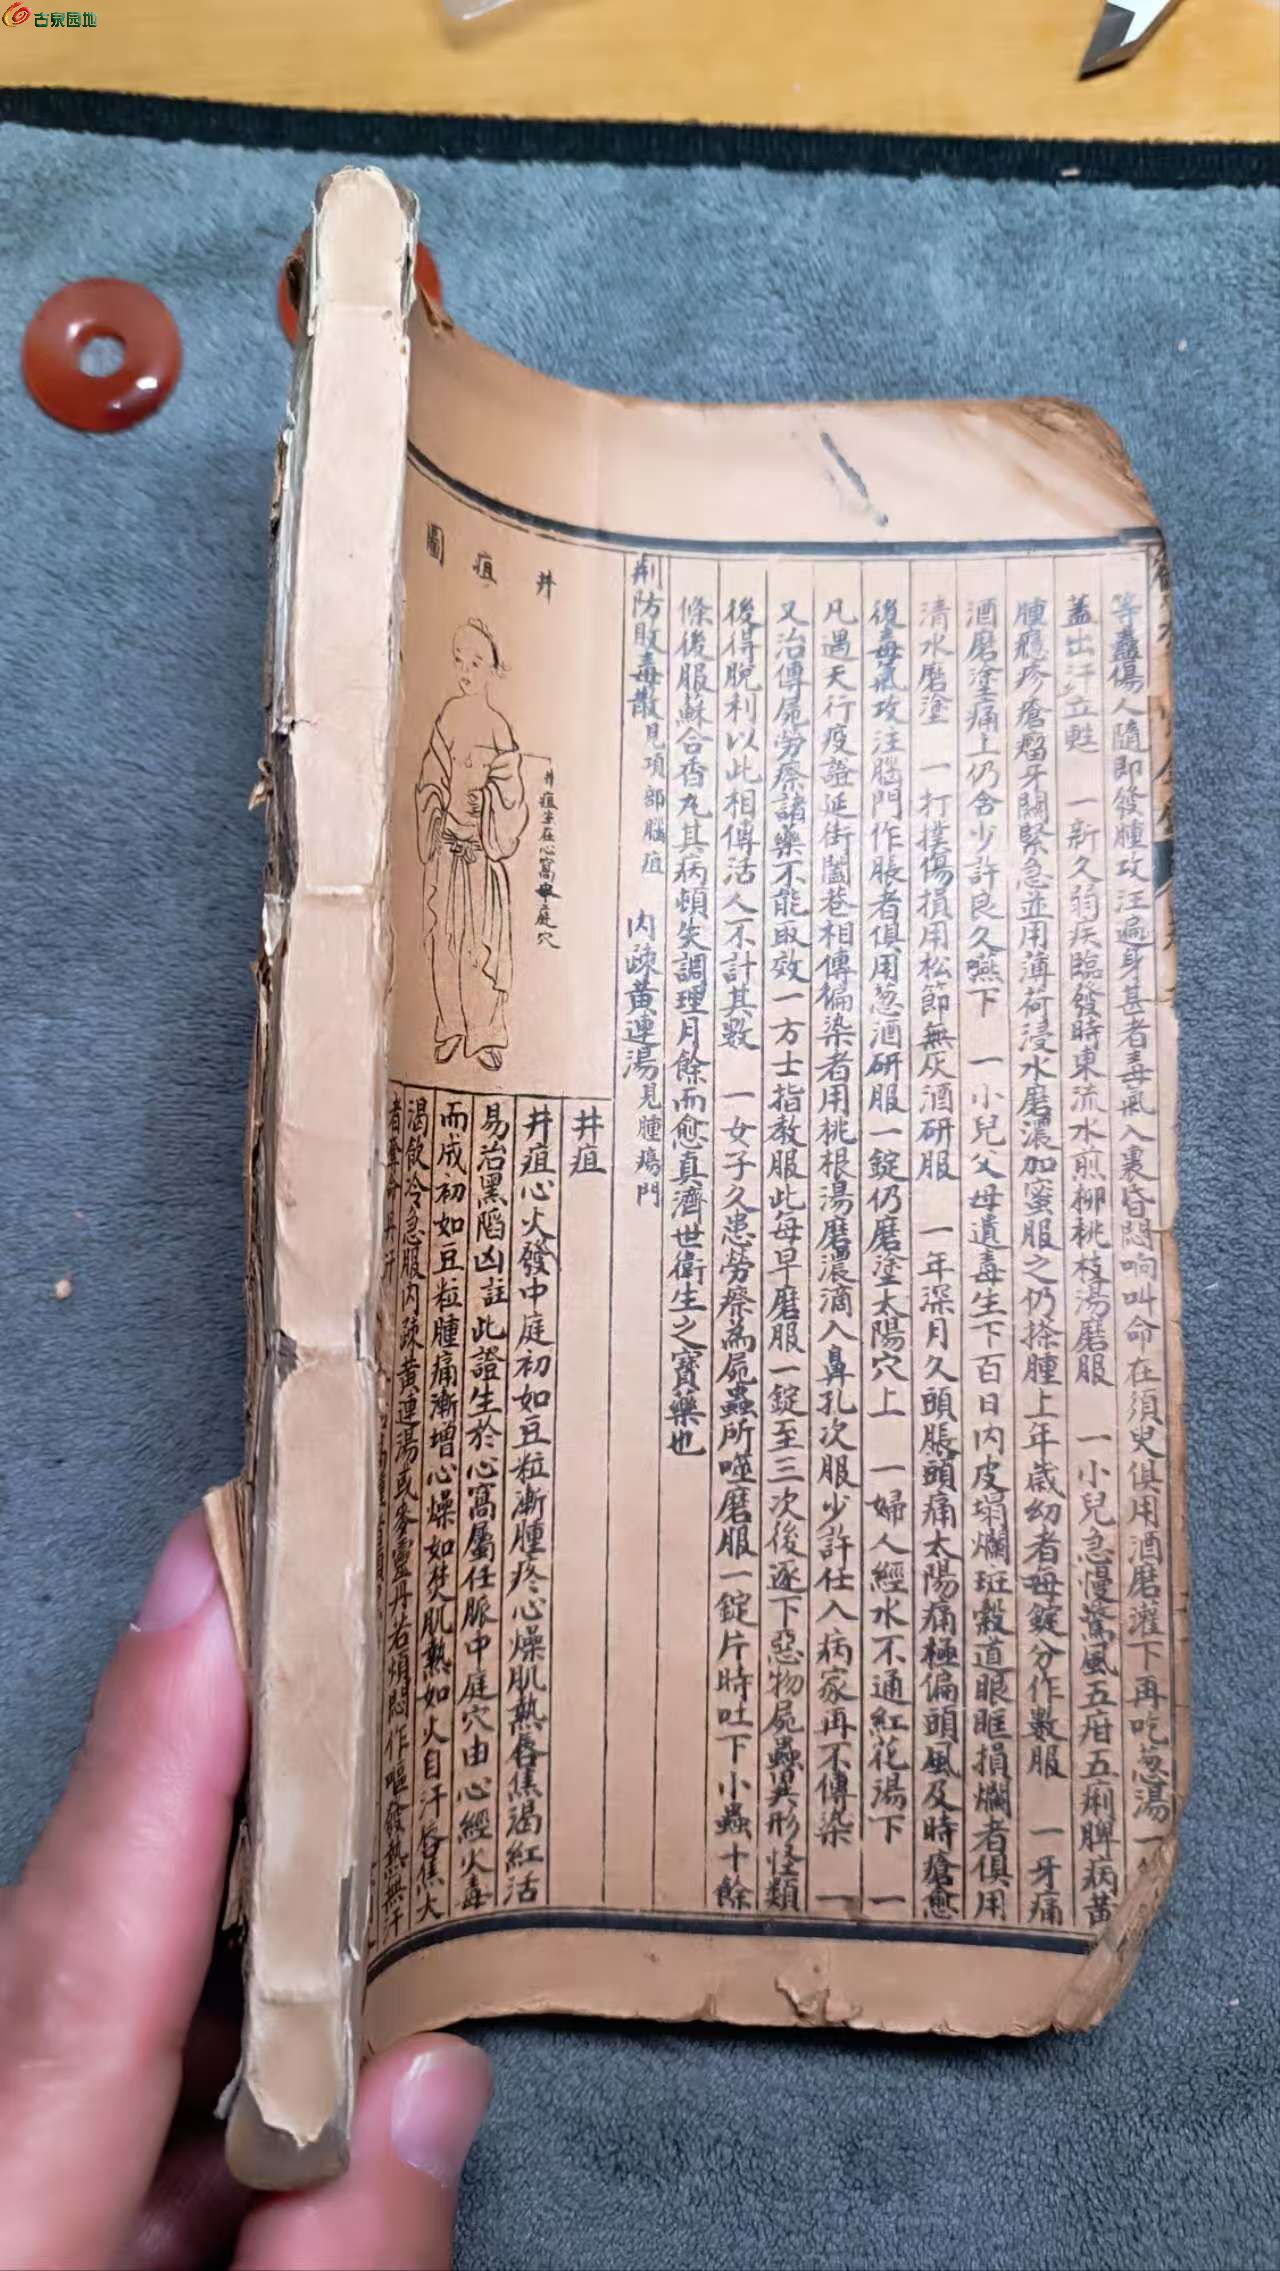 古泉园地
等蠱傷人隨即發腫攻注遍身甚者毒氣入裏昏悶响叫命在須臾俱用酒磨灌下再吃葱湯一
蓋出汗立甦 一新久弱疾臨發時東流水煎柳桃枝湯磨服 一小兒急慢驚風五疳五痢脾病黃
腫癮疹瘡瘤牙關緊急並用薄荷浸水磨濃加蜜服之仍搽腫上年歲幼者每錠分作數服 一牙痛
酒磨塗痛上仍含少許良久嚥下 一小兒父母遺毒生下百日內皮塌爛斑穀道眼眶損爛者俱用
清水磨塗 一打撲傷損用松節無灰酒研服 一年深月久頭脹頭痛太陽痛極偏頭風及時瘡愈
後毒氣攻注腦門作脹者俱用葱酒研服一錠仍磨塗太陽穴上 一婦人經水不通紅花湯下 一
凡遇天行疫證延街闔巷相傳徧染者用桃根湯磨濃滴入鼻孔次服少許任入病家再不傳染 一
又治傳屍勞瘵諸藥不能取效一方士指教服此每早磨服一錠至三次後逐下惡物屍蟲異形怪類
後得脫利以此相傳活人不計其數 一女子久患勞瘵為屍蟲所噬磨服一錠片時吐下小蟲十餘
條後服蘇合香丸其病頓失調理月餘而愈真濟世衛生之寶藥也
荊防敗毒散見項部腦疽 內疎黃連湯見腫瘍門
井疽圖
井疽生在心窩中庭穴
井疽
井疽心火發中庭初如豆粒漸腫疼心燥肌熱唇焦渴紅活
易治黑陷凶註此證生於心窩屬任脈中庭穴由心經火毒
而成初如豆粒腫痛漸增心燥如焚肌熱如火自汗唇焦大
渴飲冷急服內疎黃連湯或麥靈丹若煩悶作嘔發熱無汗
者奪命丹汗